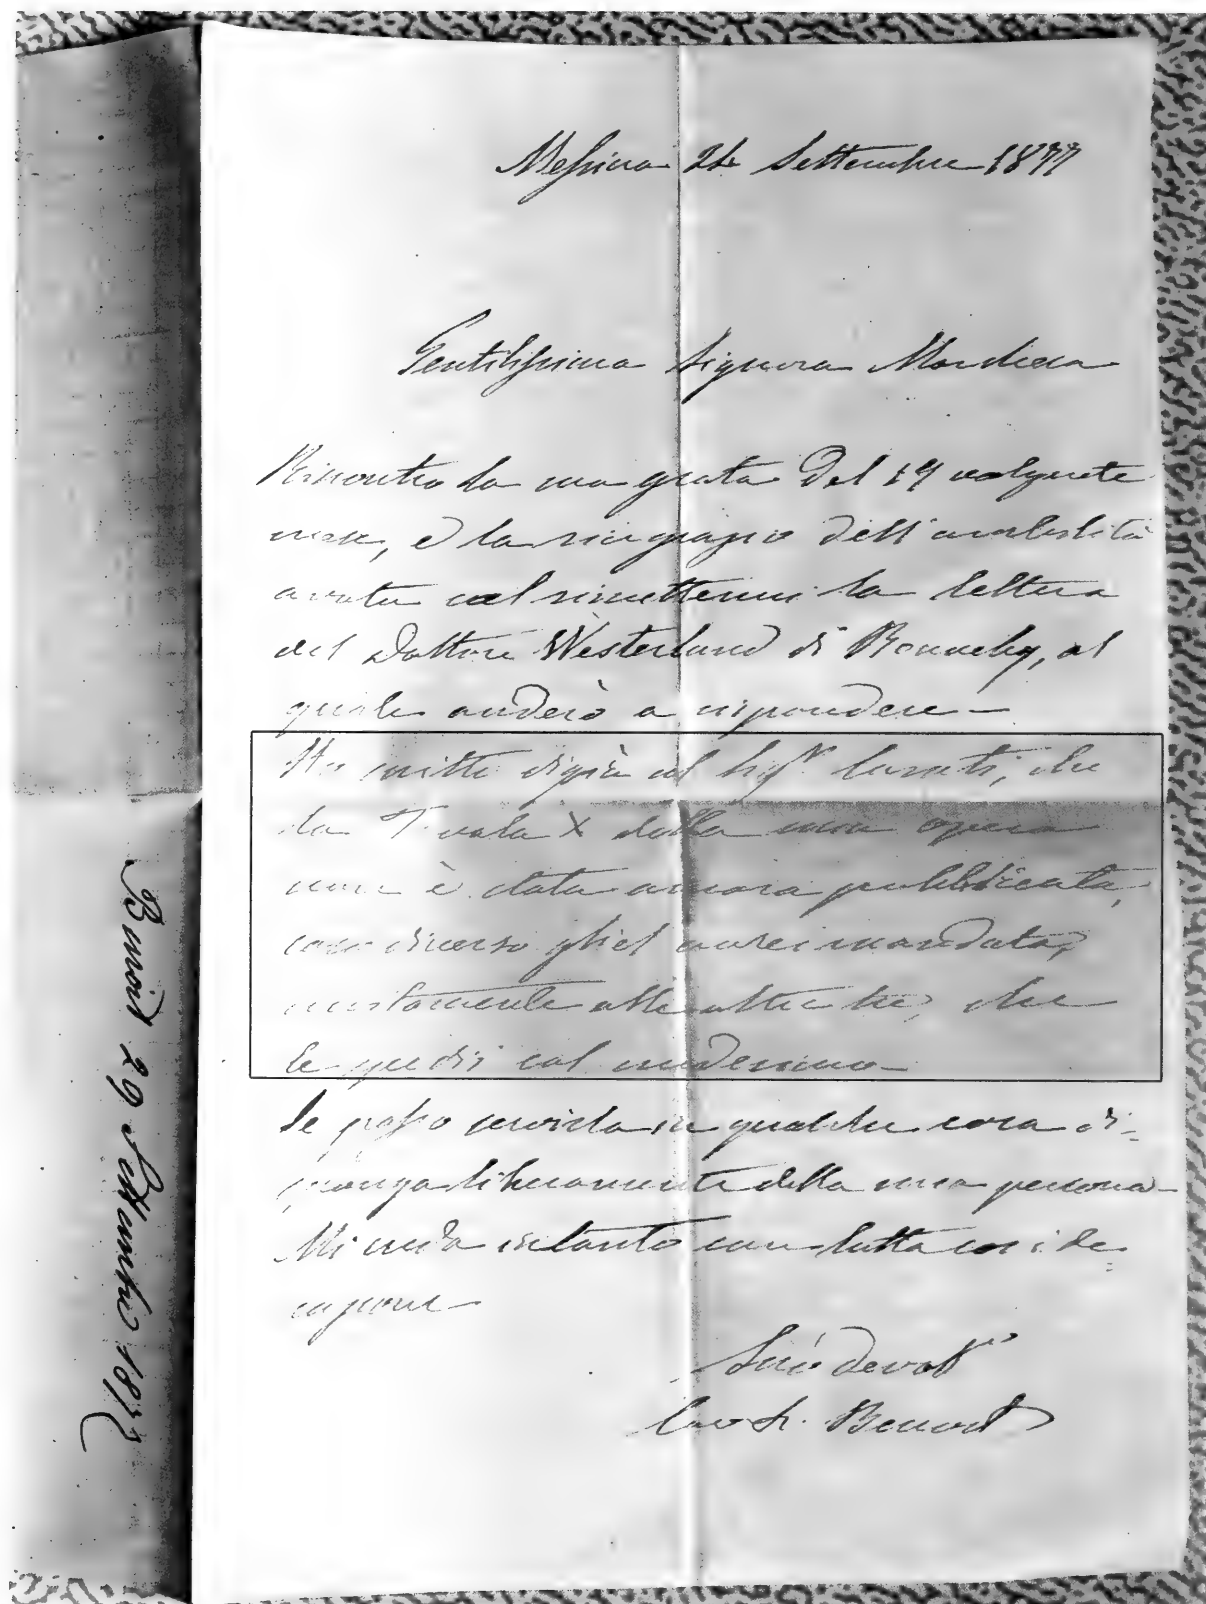 Messina 24 Settembre 1877
Gentilissima Signora
Riscontro la sua grata del 17 volgente
mese, e la ringrazio dell'amabilità
avuta col rimettermi la lettera
del Dottore Westerlund di Ronneby, al
quale anderò a rispondere —
Ho scritto digià al Sigr. che
la Tavola X della mia opera
non è stata ancora pubblicata,
caso diverso gliel'avrei mandata,
unitamente alle altre tre, che
le spedii col medesimo —
Se posso servirla in qualche cosa di-
sponga liberamente della mia persona —
Mi creda intanto con tutta conside-
razione —
Suo devotmo
Benoit
Benoit 29 Settembre 1877